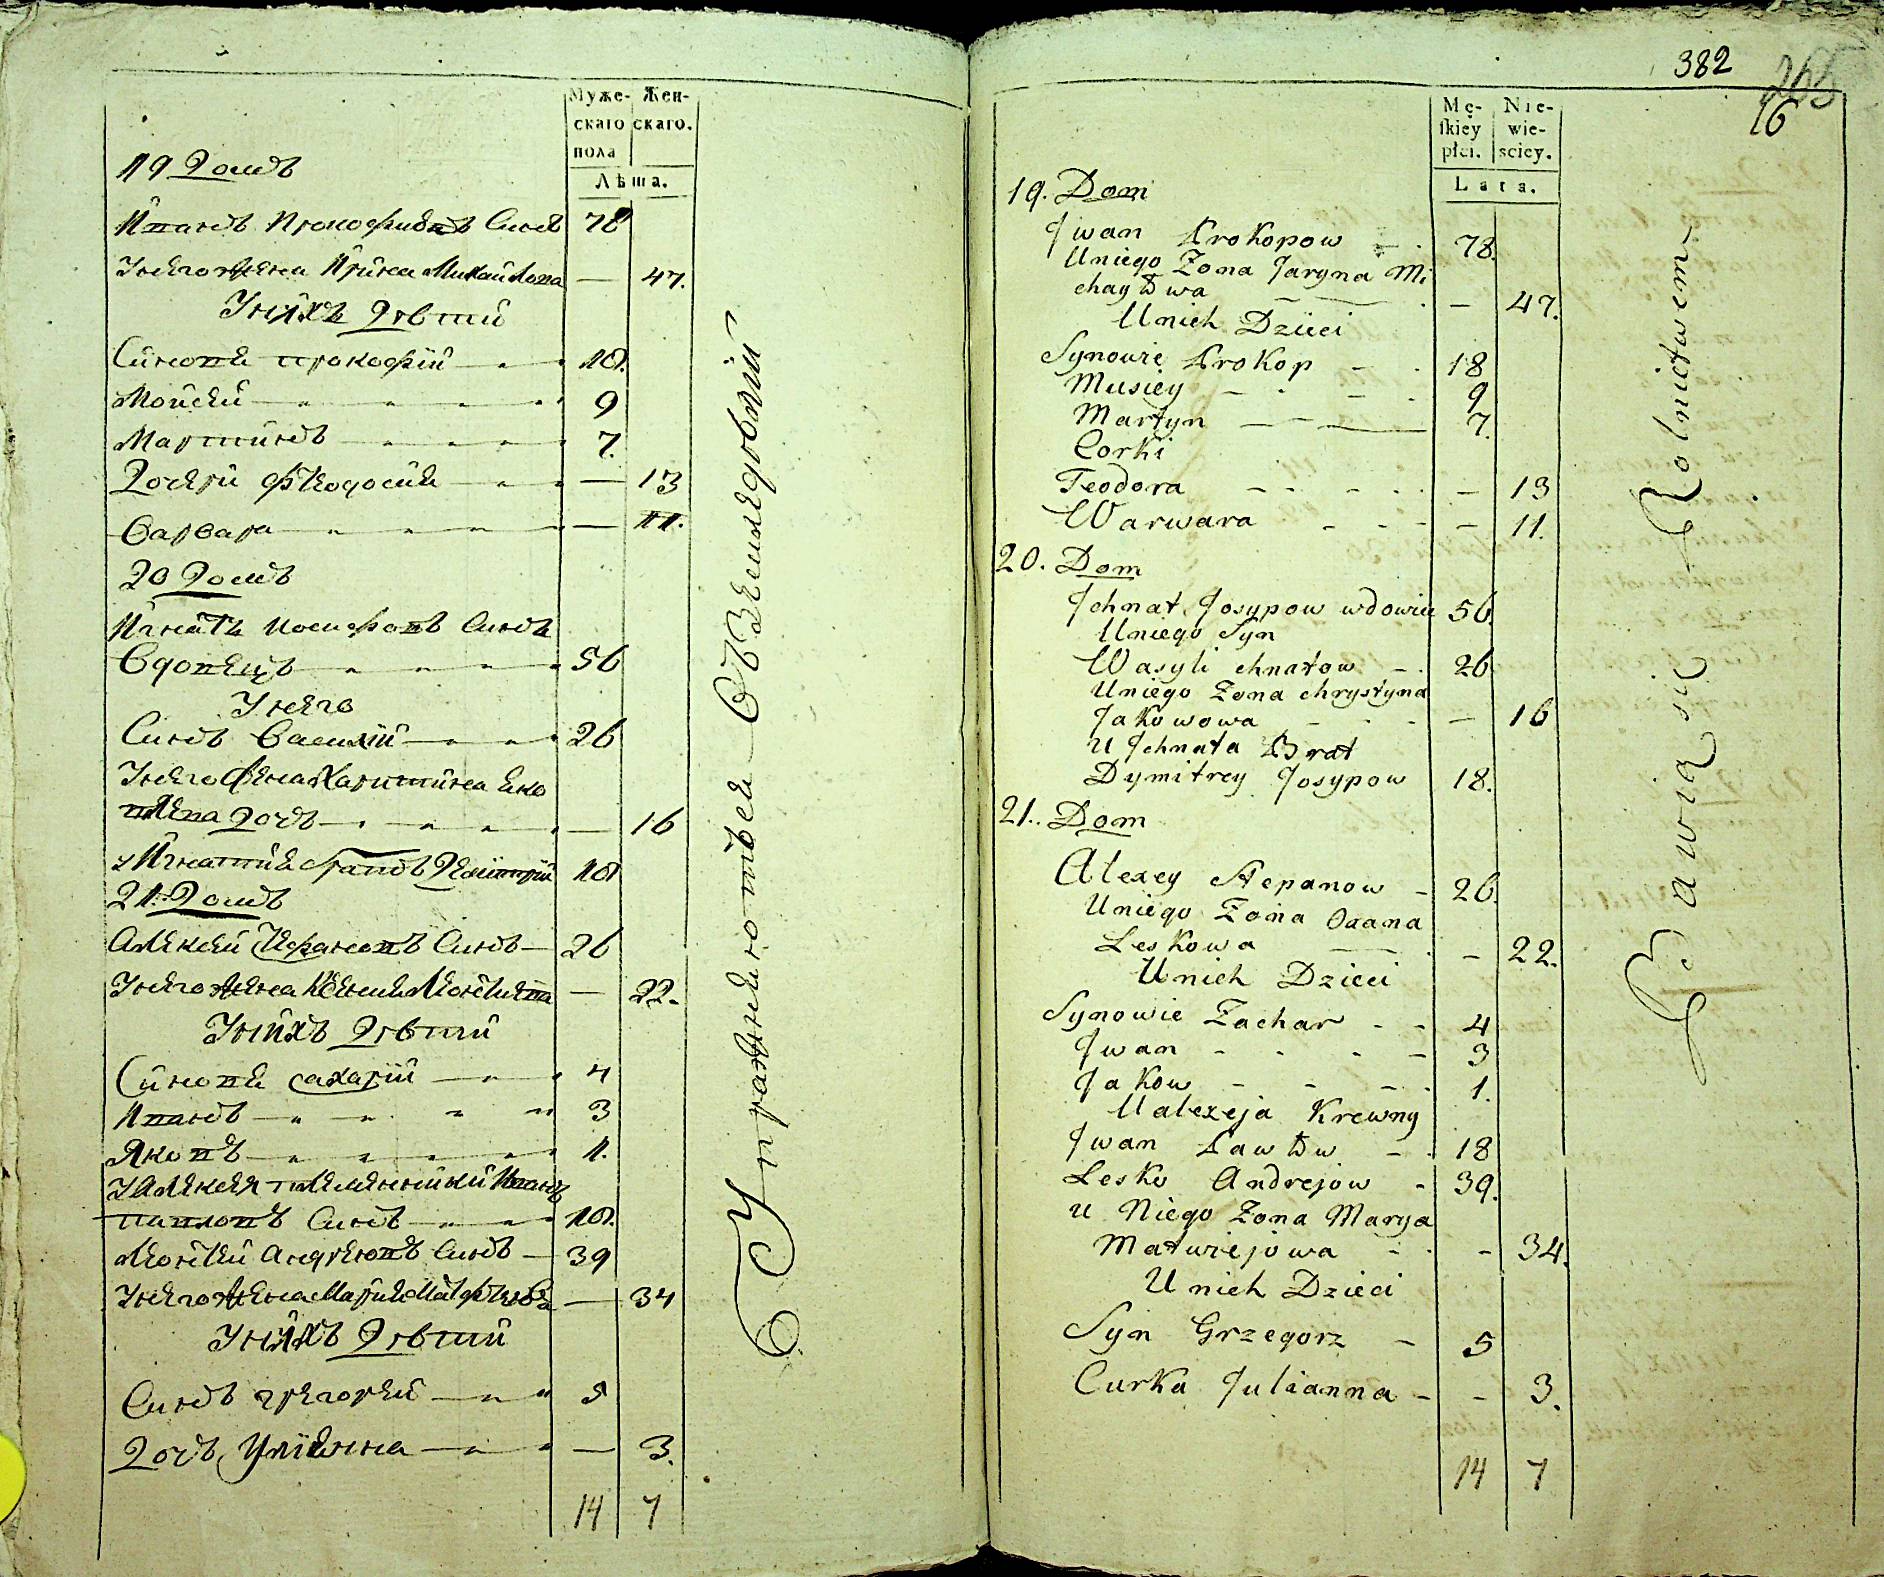 Муже-
скаго
пола
Жен-
скаго.
Лѣта.
19 Домъ
Иванъ Прокофиевъ Синъ 78
Унего жена Ирина Михайлова — 47.
Унихъ Дѣти
Синовя прокофiй 18.
Мойсей 9
Мартинъ 7.
Дочери Ѳеодосия — 13
Варвара — 11.
20 Домъ
Игнатъ Иосифовъ Синъ
Вдовецъ 56
Унего
Синъ Василiй 26
Унего жена Харитина Яко
влева дочъ — 16
у Игнатия братъ Дмитрiй 18
21. Домъ
Алексей Стефановъ Синъ — 26
Унего жена Ксения — 22.
Унихъ Дѣти
Синовя Захарiй 4
Иванъ 3
Яковъ 1.
У Алексея племенникъ Иванъ
павловъ Синъ 18.
Андреевъ Синъ — 39
Унего жена Мария Матфеева — 34
Унихъ Дѣти
Синъ григорей 5
Дочъ Улiянна — 3.
14 7
Упражняются Въ Земледѣлiи
382
265
16
Mę-
ſkiey
płci.
Nie-
wie-
sciey.
Lata.
19. Dom
Jwan Prokopow — . 78.
Uniego Zona Jaryna Mi
chayłowa — 47.
Unich Dzieci
Synowie Prokop — . 18
Musiey 9
Martyn 7.
Corki
Teodora — 13
Warwara — 11.
20. Dom
Jchnat Josypow wdowiec 56.
Uniego Syn
Wasyli chnatow — . 26
Uniego Zona chrystyna
Jakowowa — 16
u Jchnata Brat
Dymitrey Josypow 18.
21. Dom
Alexey Stepanow — 26.
Uniego Zona Oxana
Leskowa — 22.
Unich Dzieci
Synowie Zachar - - 4
Jwan - - - - 3
Jakow - - - . 1.
Ualexeja Krewny
Jwan Pawłow — . 18
Lesko Andrejow - 39.
u Niego Zona Marya
Matwiejowa - . - 34.
Unich Dzieci
Syn Grzegorz — 5
Curka Julianna - - 3.
14 7
Bawią się Rolnictwem